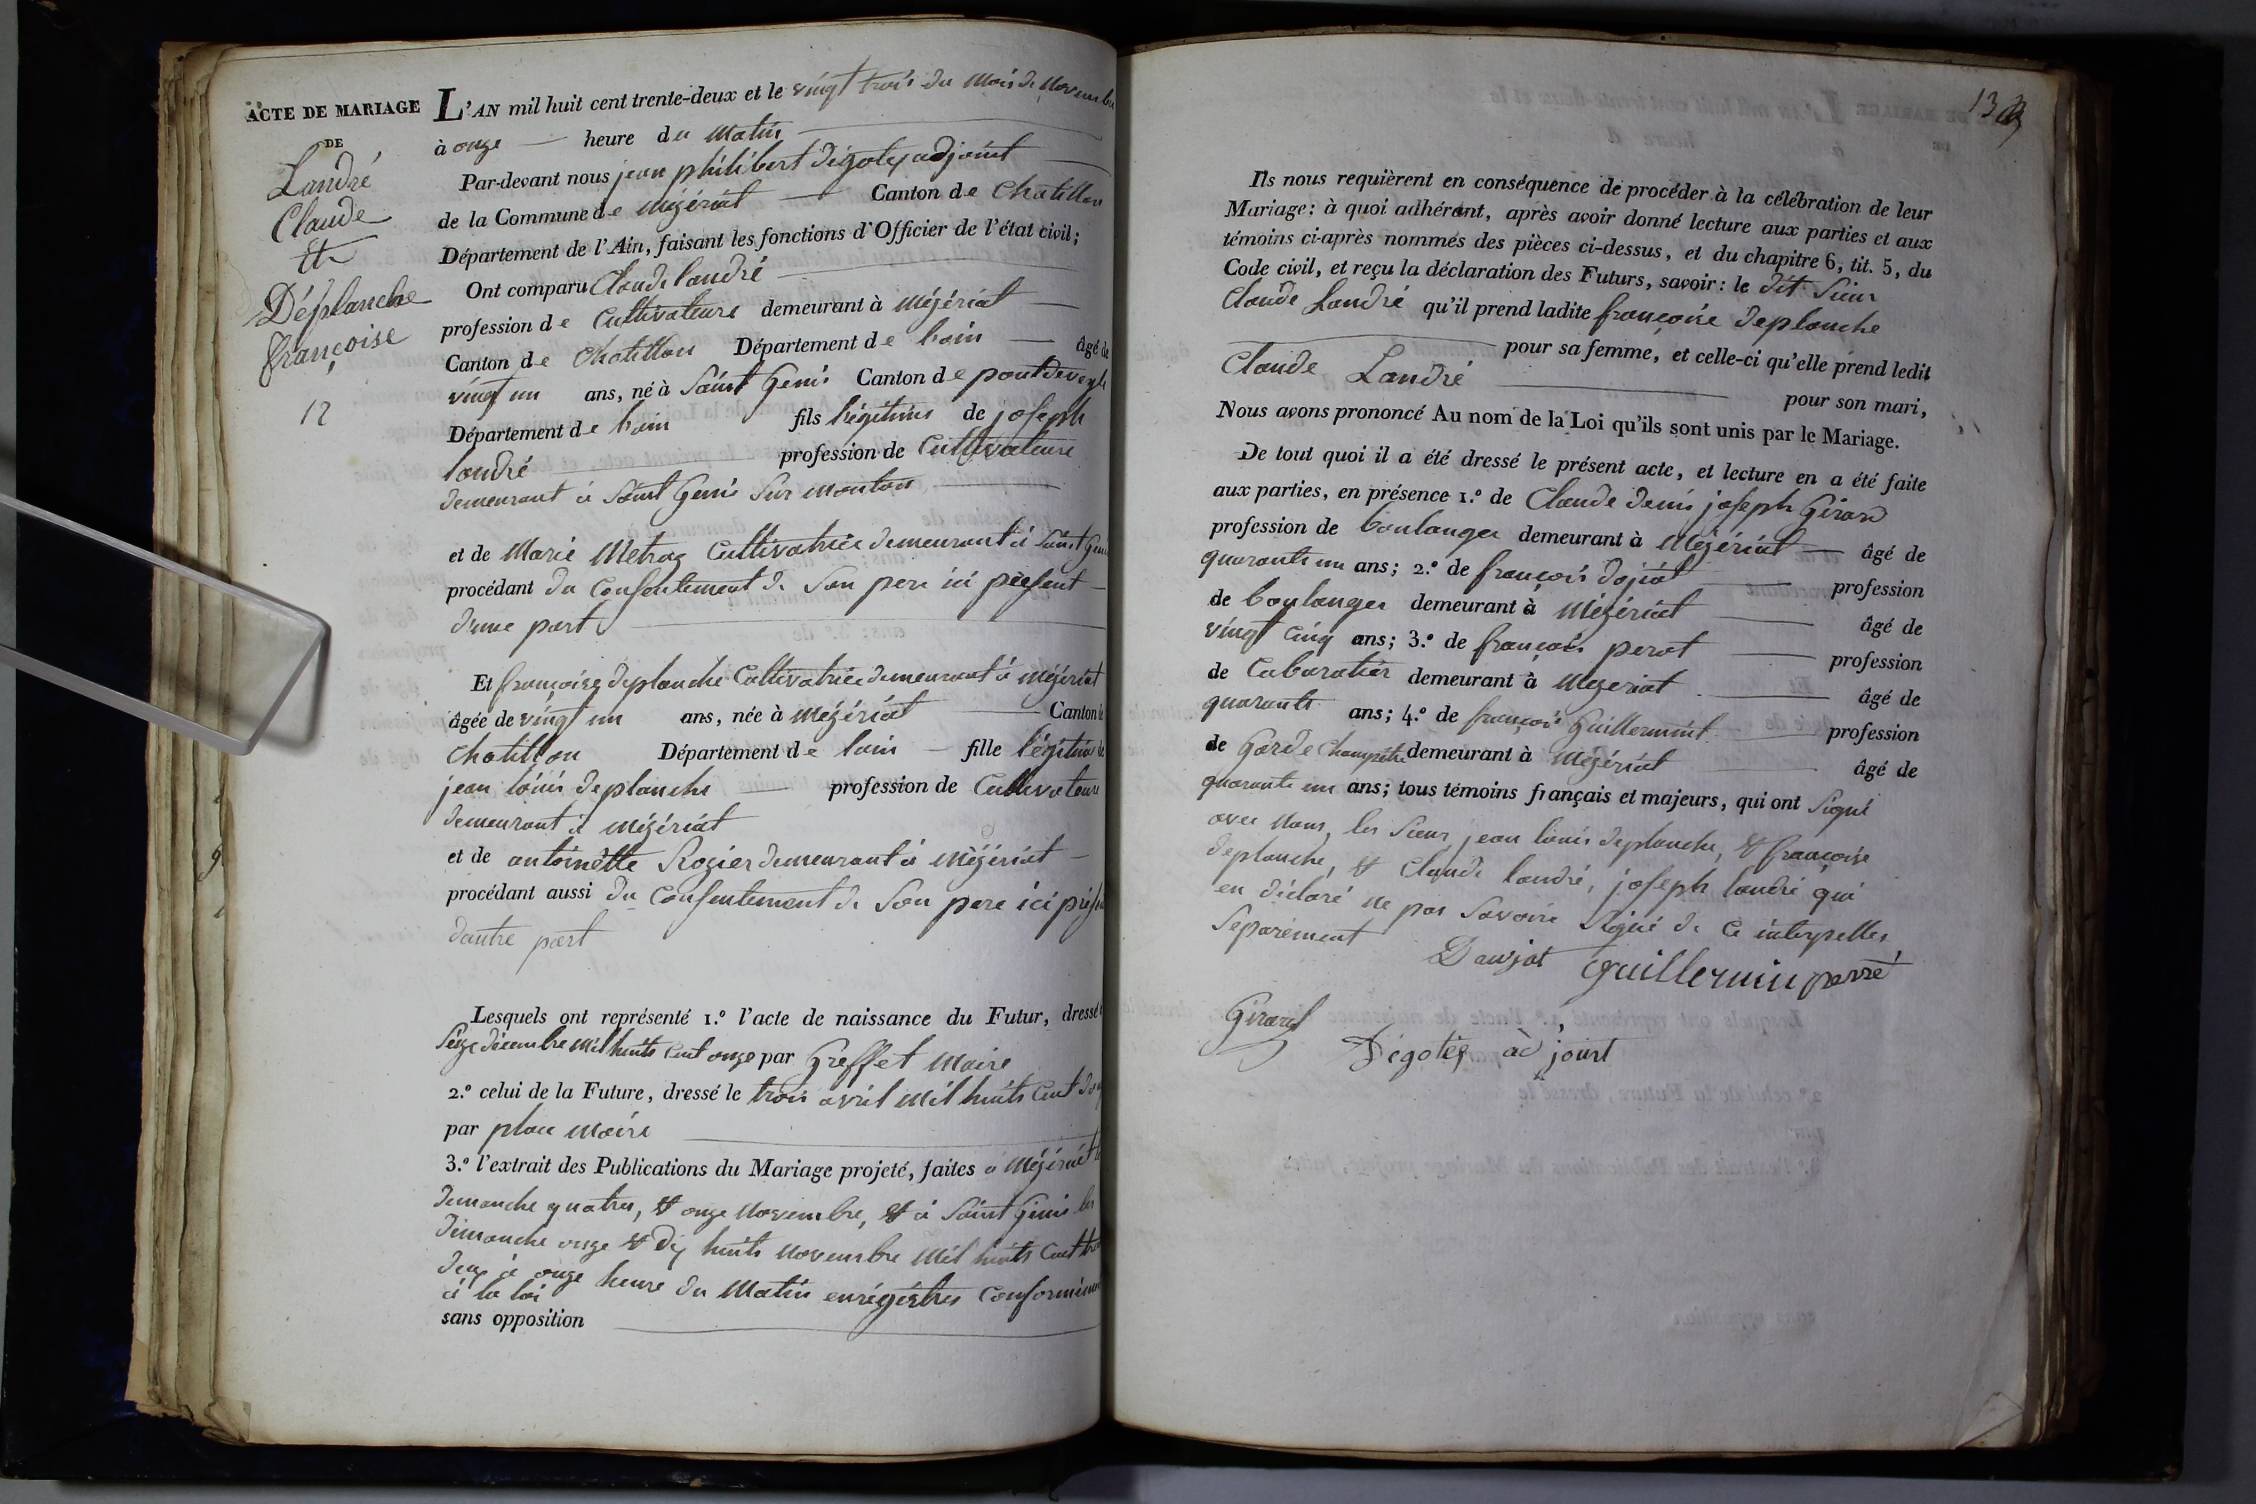 ACTE DE MARIAGE
DE
Landré
Claude
et
Déplanche
françoise
12
L'AN mil huit cent trente-deux et le vingt trois du mois de Novembre
à onze heure du Matin
Par-devant nous jean philibert Digoley adjoint
de la Commune de Mézériat Canton de Chatillon
Département de l'Ain, faisant les fonctions d'Officier de l'état civil;
Ont comparu Claude landré
profession de Cultivateure demeurant à Mézériat
Canton de Chatillon Département de lain âgé de
vingt un ans, né à Saint Genis Canton de pontdeveyle
Département de lain fils légitime de joseph
landré profession de Cultivateure
demeurant à Saint Genis Sur Menton
et de Marie Metraz Cultivatrice demeurant à Saint Genis
procédant du Consentement de Son pere ici présent
d'une part
Et françoise deplanche Cultivatrice demeurant à Mézériat
âgée de vingt un ans, née à Mézériat Canton de
Chatillon Département de lain fille légitime de
jean louis deplanche profession de Cultivateure
demeurant à Mézériat
et de antoinette Rozier demeurant à Mézériat
procédant aussi du Consentement de Son pere ici présent
dautre part
Lesquels ont représenté 1.º l'acte de naissance du Futur, dressé
Seize décembre mil huits Cent onze par Greffet Maire
2.º celui de la Future, dressé le trois avril Mil huits Cent
par Maire
3.º l'extrait des Publications du Mariage projeté, faites à Mézériat
dimanche quatres, et onze Novembre, et à Saint Genis les
dimanche onze et dix huits Novembre Mil huits Cent
deux à onze heure du Matin enrégistres Conformément
à la loi
sans opposition
13
Ils nous requièrent en conséquence de procéder à la célébration de leur
Mariage: à quoi adhérant, après avoir donné lecture aux parties et aux
témoins ci-après nommés des pièces ci-dessus, et du chapitre 6, tit. 5, du
Code civil, et reçu la déclaration des Futurs, savoir: le dit Sieur
Claude Landré qu'il prend ladite françoise deplanche
pour sa femme, et celle-ci qu'elle prend ledit
Claude Landré pour son mari,
Nous avons prononcé Au nom de la Loi qu'ils sont unis par le Mariage.
De tout quoi il a été dressé le présent acte, et lecture en a été faite
aux parties, en présence 1.º de Claude denis joseph Girard
profession de boulanger demeurant à Mézériat âgé de
quarante un ans; 2.º de françois dojiat profession
de boulanger demeurant à Mézériat âgé de
vingt Cinq ans; 3.º de françois perat profession
de Cabaratier demeurant à Mezeriat âgé de
quarante ans; 4.º de françois Guillermint profession
de Garde Champêtre demeurant à Mézériat âgé de
quarante un ans; tous témoins français et majeurs, qui ont Signé
avec Nous, les Sieur jean louis deplanche, et françoise
deplanche, et Claude landré, joseph landré qui
en déclaré ne pas Savoire Signé de Ce interpelles
Séparément
Daujat Guillermin perré
Girard
Digoley adjoint